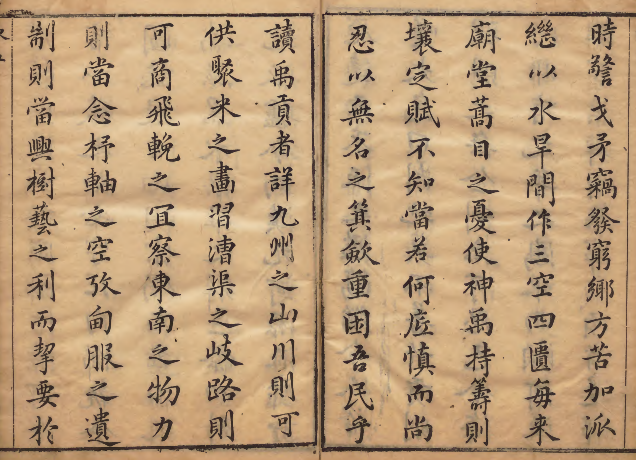 時警戈矛竊發窮鄉方苦加派
繼以水旱間作三空四匱每來
廟堂蒿目之憂使神禹持籌則
壤定賦不知當若何底慎而尚
忍以無名之箕斂重困吾民乎
讀禹貢者詳九州之山川則可
供聚米之畫習漕渠之岐路則
可商飛輓之冝察東南之物力
則當念杼軸之空攷甸服之遺
制則當興樹藝之利而挈要於